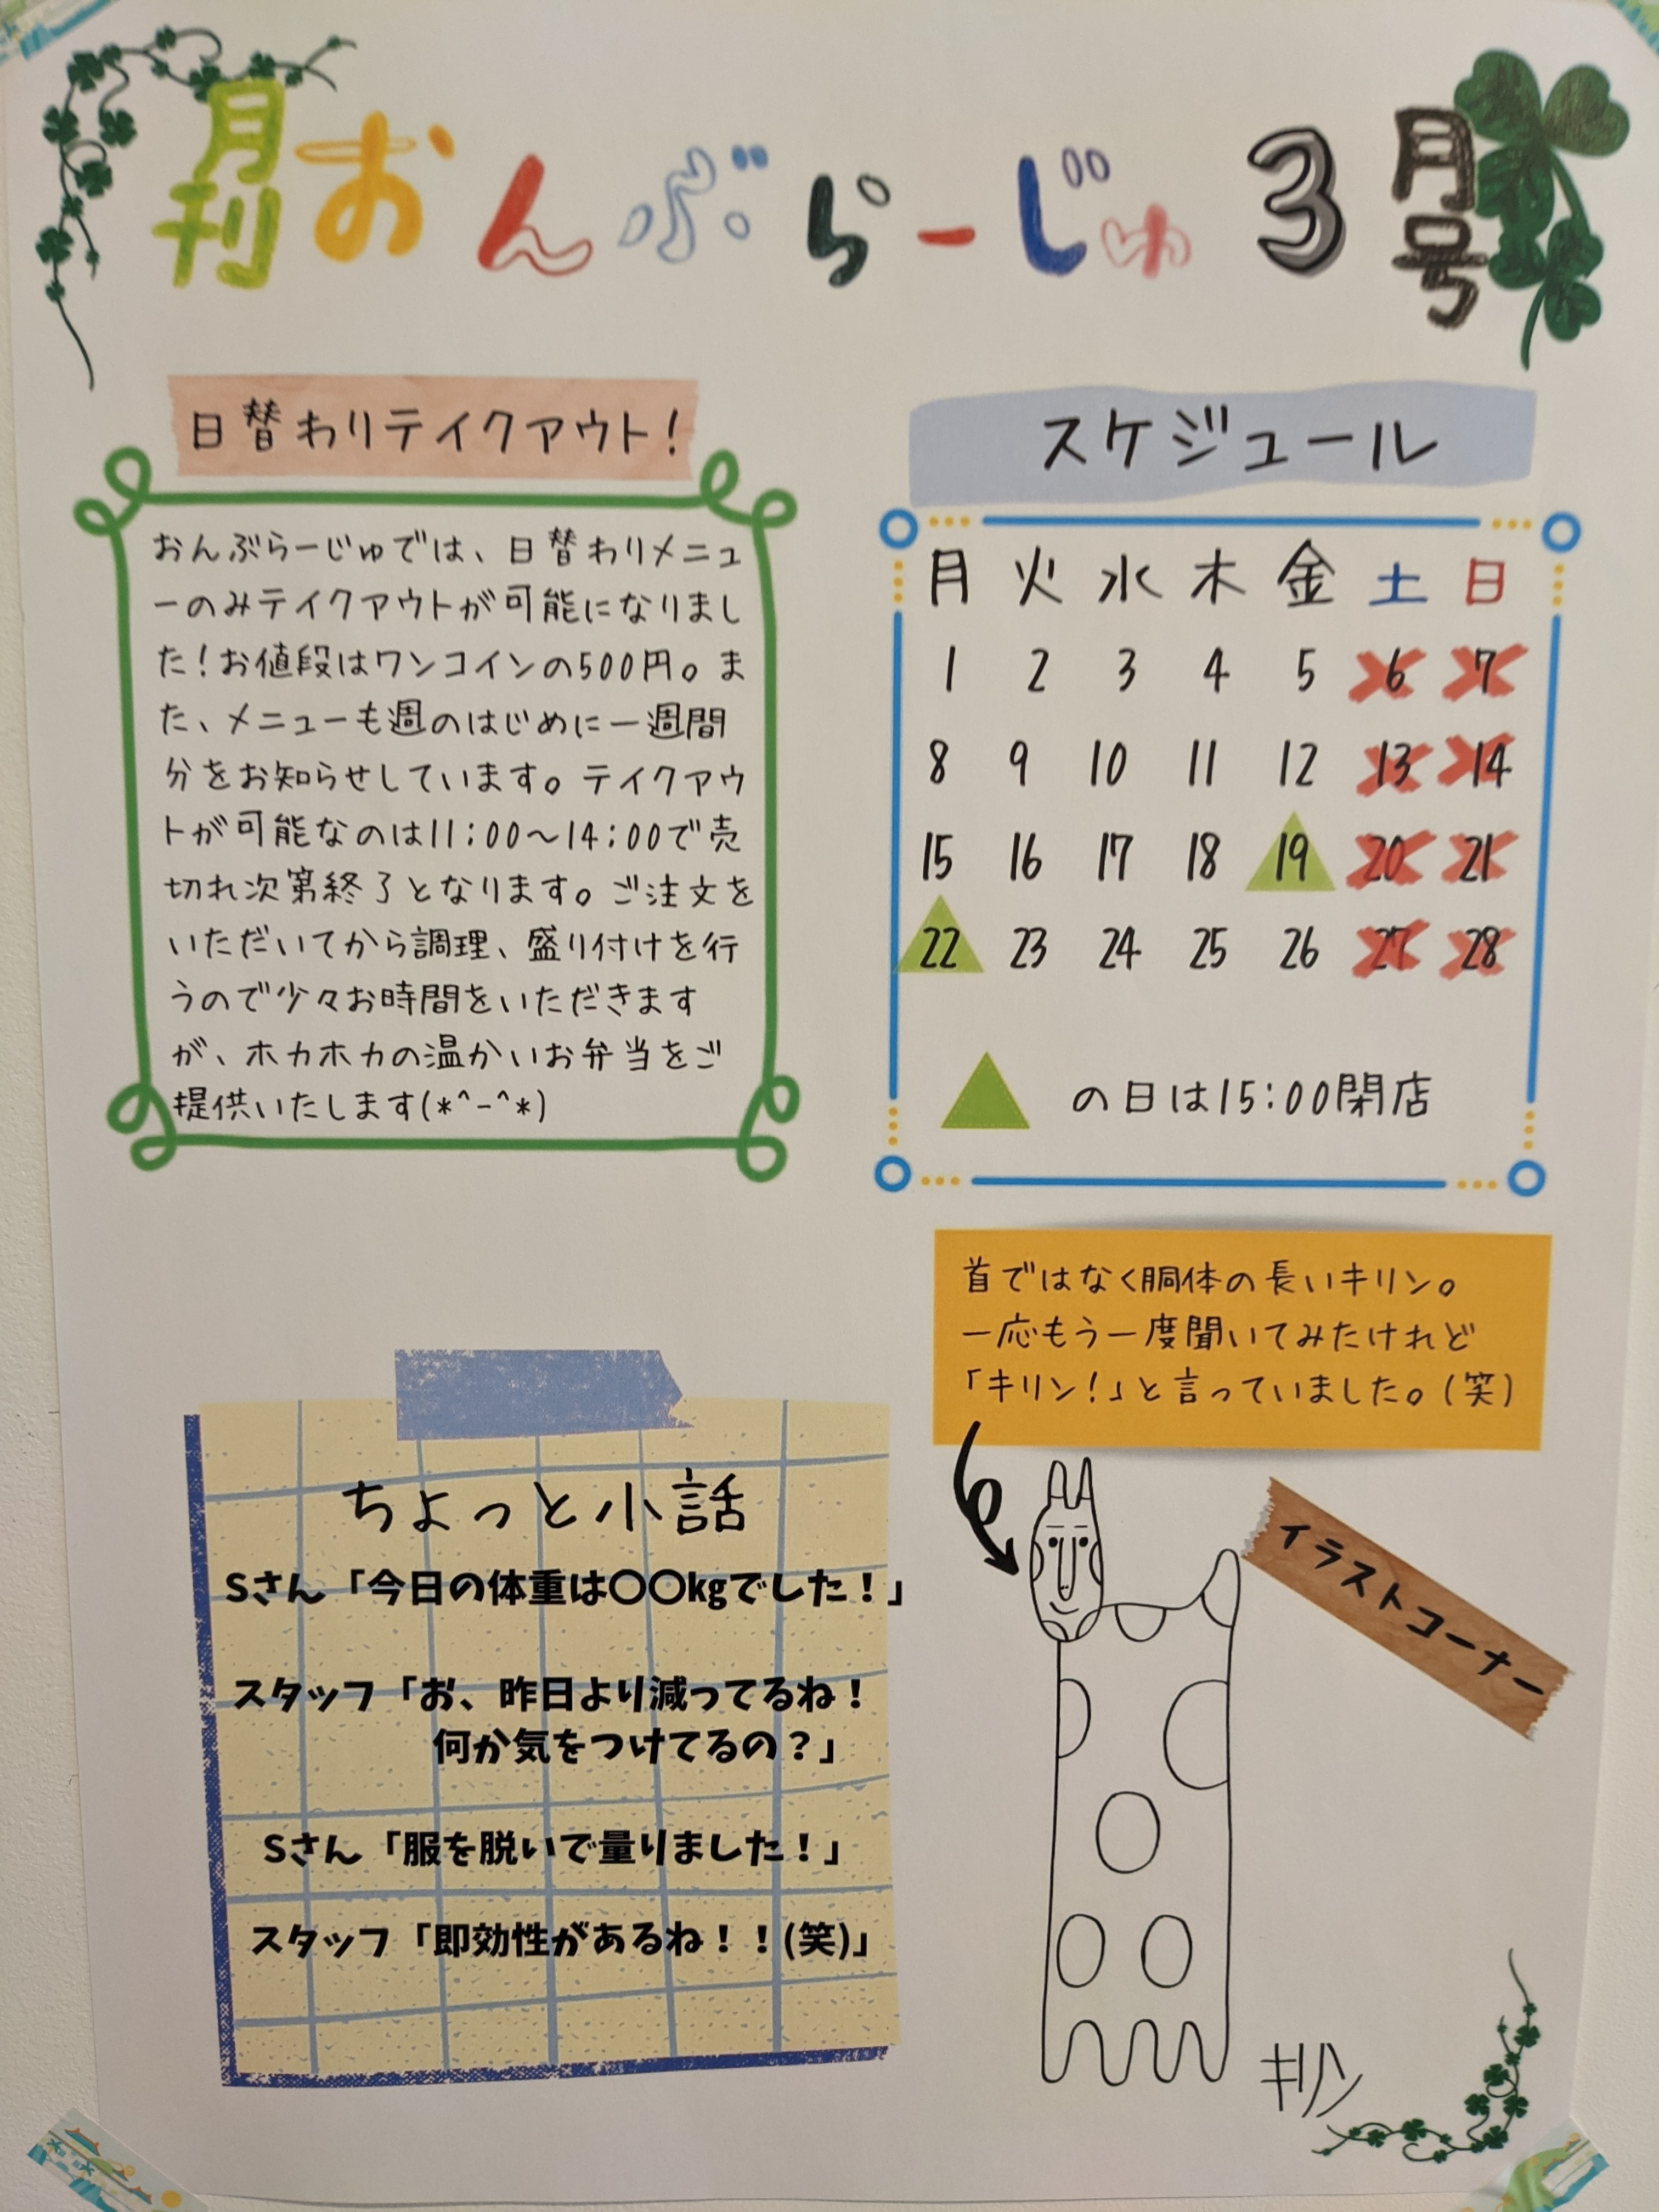 月刊おんぶらーじゅ3月号
日替わりテイクアウト!
おんぶらーじゅでは、日替わりメニュ
ーのみテイクアウトが可能になりまし
た!お値段はワンコインの500円。ま
た、メニューも週のはじめに一週間
分をお知らせしています。テイクアウ
トが可能なのは11:00～14:00で売
切れ次第終了となります。ご注文を
いただいてから調理、盛り付けを行
うので少々お時間をいただきます
が、ホカホカの温かいお弁当をご
提供いたします(*^-^*)
スケジュール
月 火 水 木 金 土 日
1 2 3 4 5 6 7
8 9 10 11 12 13 14
15 16 17 18 19 20 21
22 23 24 25 26 27 28
の日は15:00閉店
首ではなく胴体の長いキリン。
一応もう一度聞いてみたけれど
「キリン!」と言っていました。(笑)
イラストコーナー
キリン
ちょっと小話
Sさん「今日の体重は〇〇㎏でした！」
スタッフ「お、昨日より減ってるね！
何か気をつけてるの？」
Sさん「服を脱いで量りました！」
スタッフ「即効性があるね！！(笑)」